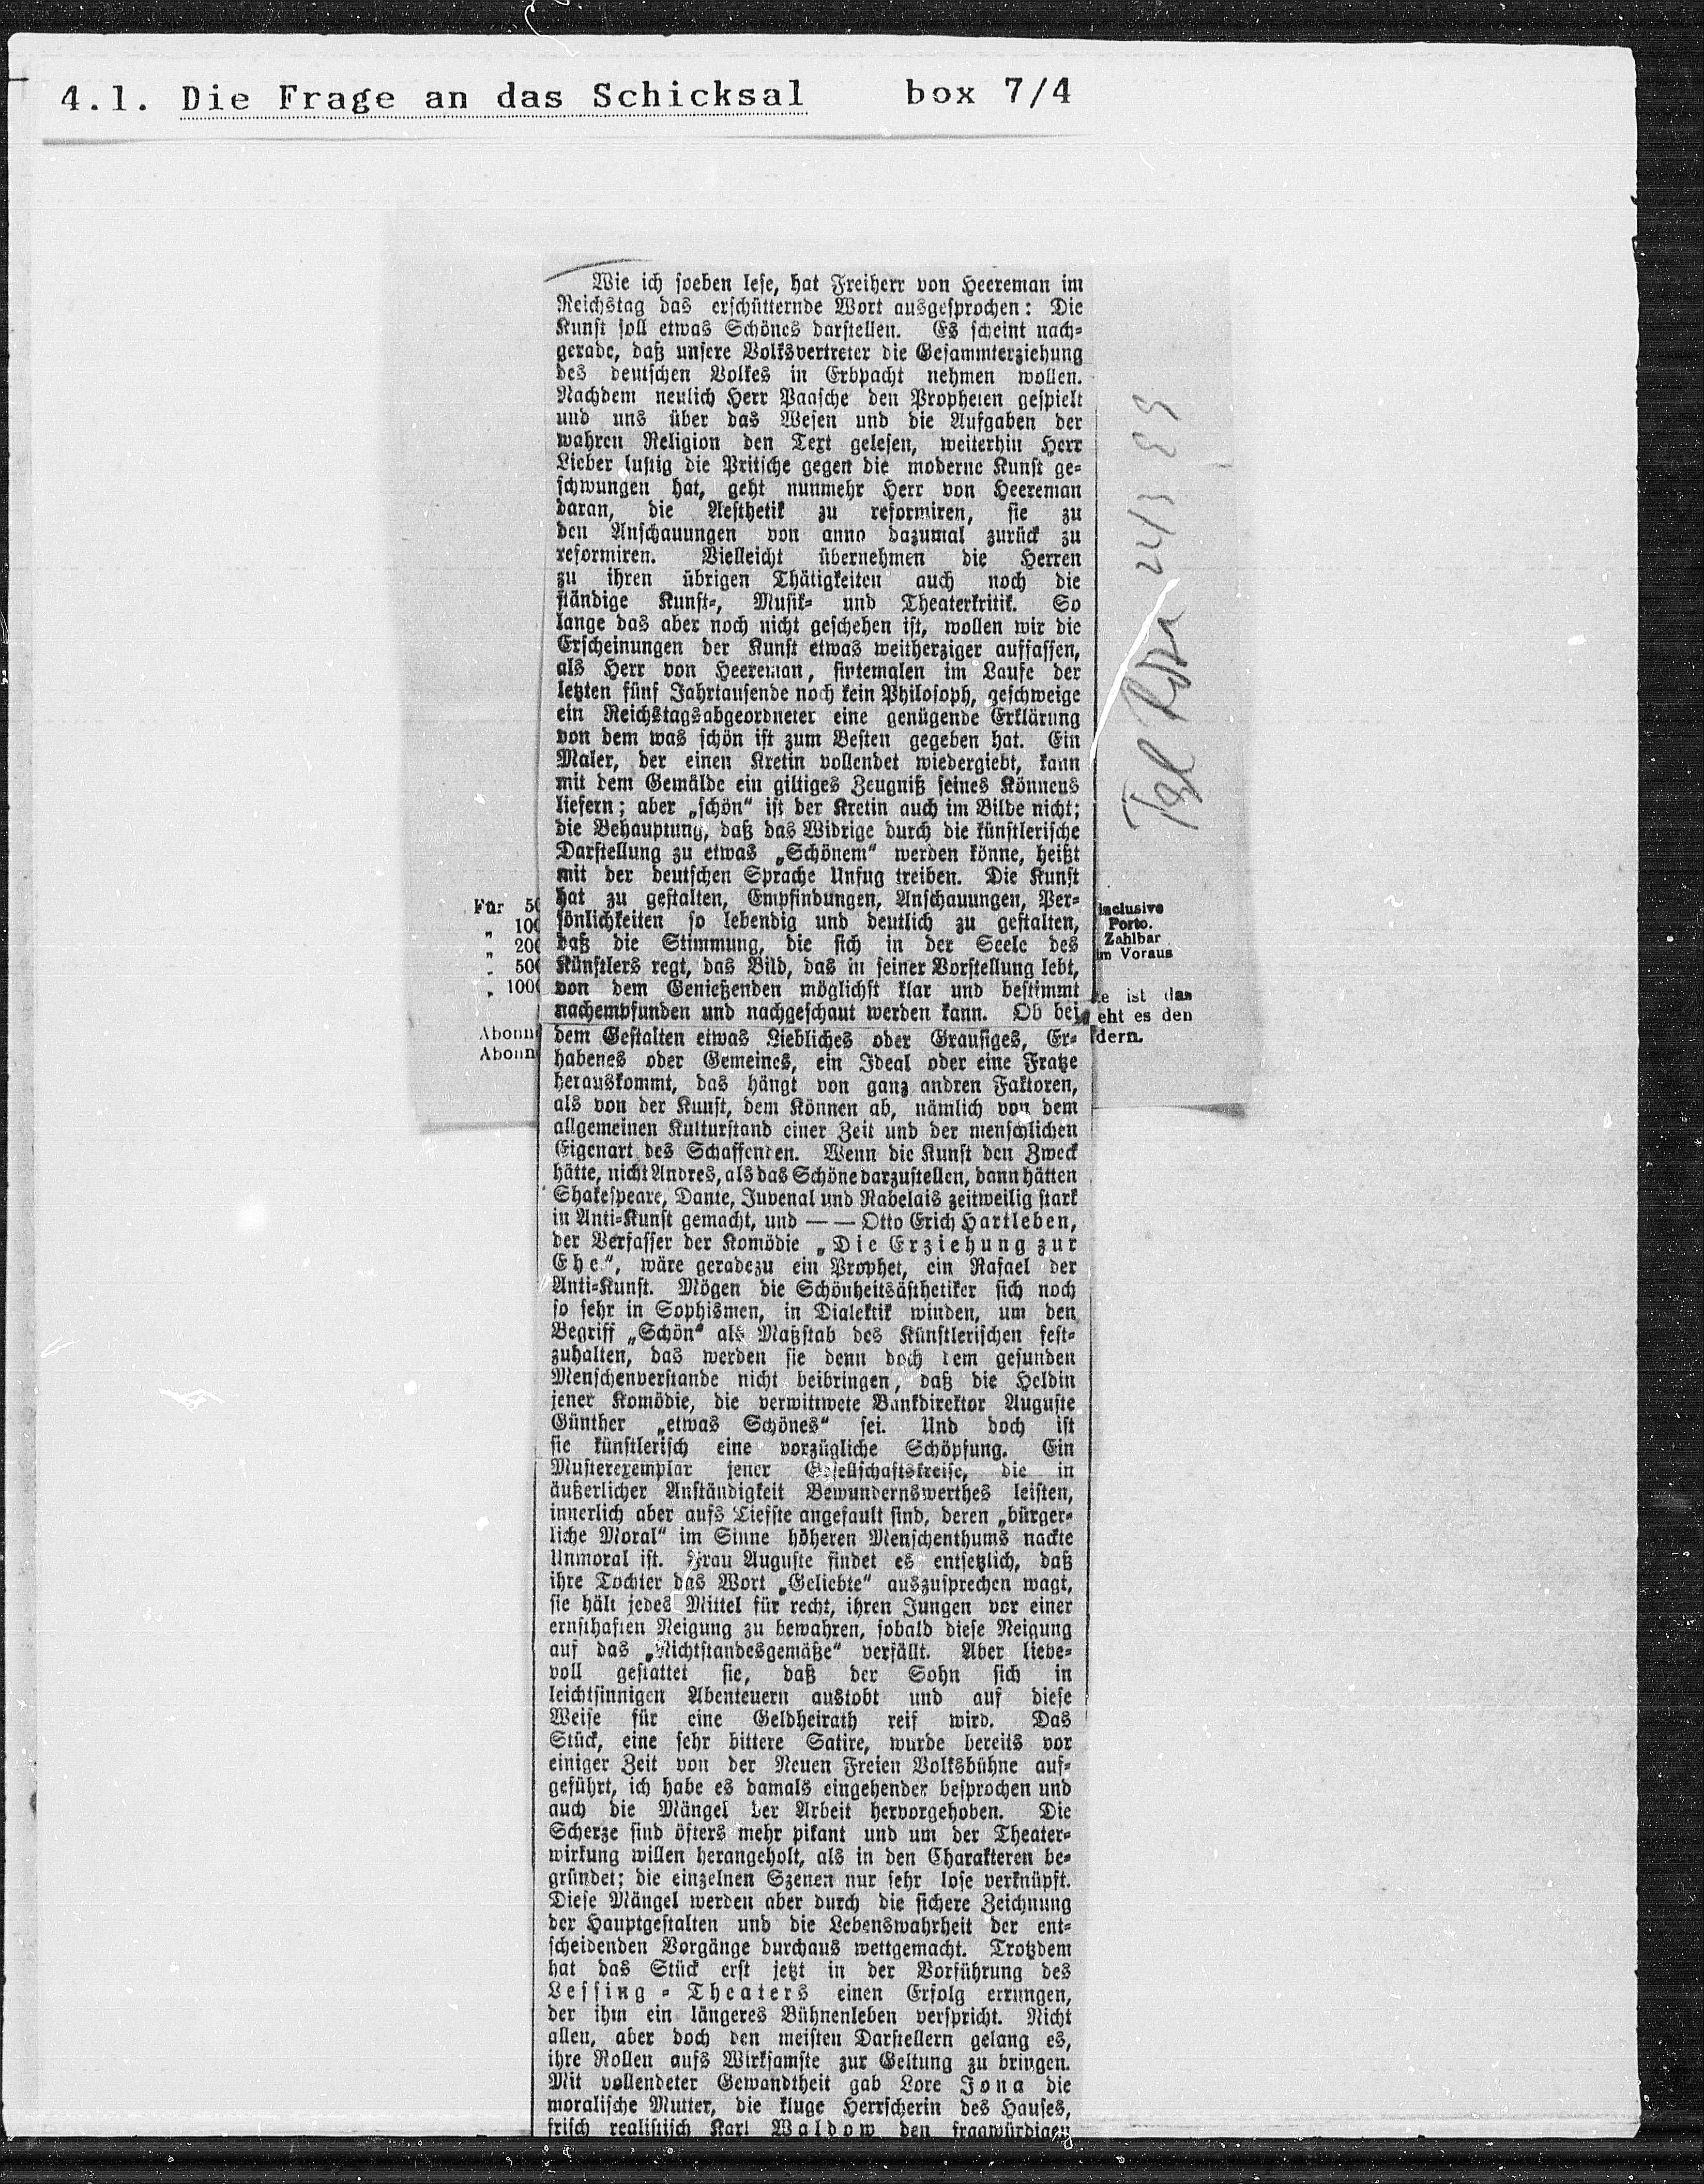 4.1. Die Frage an das Schicksal box 7/4
Wie ich soeben lese, hat Freiherr von Heereman im
Reichstag das erschütternde Wort ausgesprochen: Die
Kunst soll etwas Schönes darstellen. Es scheint nach-
gerade, daß unsere Volksvertreter die Gesammterziehung
des deutschen Volkes in Erbpacht nehmen wollen.
Nachdem neulich Herr Paasche den Propheten gespielt
und uns über das Wesen und die Aufgaben der
wahren Religion den Text gelesen, weiterhin Herr
Lieber lustig die Pritsche gegen die moderne Kunst ge-
schwungen hat, geht nunmehr Herr von Heereman
daran, die Aesthetik zu reformiren, sie zu
den Anschauungen von anno dazumal zurück zu
reformiren. Vielleicht übernehmen die Herren
zu ihren übrigen Thätigkeiten auch noch die
ständige Kunst-, Musik- und Theaterkritik. So
lange das aber noch nicht geschehen ist, wollen wir die
Erscheinungen der Kunst etwas weitherziger auffassen,
als Herr von Heereman, sintemalen im Laufe der
letzten fünf Jahrtausende noch kein Philosoph, geschweige
ein Reichstagsabgeordneter eine genügende Erklärung
von dem was schön ist zum Besten gegeben hat. Ein
Maler, der einen Kretin vollendet wiedergiebt, kann
mit dem Gemälde ein giltiges Zeugniß seines Könnens
liefern; aber „schön“ ist der Kretin auch im Bilde nicht;
die Behauptung, daß das Widrige durch die künstlerische
Darstellung zu etwas „Schönem“ werden könne, heißt
mit der deutschen Sprache Unfug treiben. Die Kunst
hat zu gestalten, Empfindungen, Anschauungen, Per-
sönlichkeiten so lebendig und deutlich zu gestalten,
daß die Stimmung, die sich in der Seele des
Künstlers regt, das Bild, das in seiner Vorstellung lebt,
von dem Genießenden möglichst klar und bestimmt
nachempfunden und nachgeschaut werden kann. Ob bei
dem Gestalten etwas Liebliches oder Grausiges, Er-
habenes oder Gemeines, ein Ideal oder eine Fratze
herauskommt, das hängt von ganz andren Faktoren,
als von der Kunst, dem Können ab, nämlich von dem
allgemeinen Kulturstand einer Zeit und der menschlichen
Eigenart des Schaffenden. Wenn die Kunst den Zweck
hätte, nicht Andres, als das Schöne darzustellen, dann hätten
Shakespeare, Dante, Juvenal und Rabelais zeitweilig stark
in Anti-Kunst gemacht, und — — Otto Erich Hartleben,
der Verfasser der Komödie „Die Erziehung zur
Ehe“, wäre geradezu ein Prophet, ein Rafael der
Anti-Kunst. Mögen die Schönheitsästhetiker sich noch
so sehr in Sophismen, in Dialektik winden, um den
Begriff „Schön“ als Maßstab des Künstlerischen fest-
zuhalten, das werden sie denn doch dem gesunden
Menschenverstande nicht beibringen, daß die Heldin
jener Komödie, die verwittwete Bankdirektor Auguste
Günther „etwas Schönes“ sei. Und doch ist
sie künstlerisch eine vorzügliche Schöpfung. Ein
Musterexemplar jener Gesellschaftskreise, die in
äußerlicher Anständigkeit Bewundernswerthes leisten,
innerlich aber aufs Tiefste angefault sind, deren „bürger-
liche Moral“ im Sinne höheren Menschenthums nackte
Unmoral ist. Frau Auguste findet es entsetzlich, daß
ihre Tochter das Wort „Geliebte“ auszusprechen wagt,
sie hält jedes Mittel für recht, ihren Jungen vor einer
ernsthaften Neigung zu bewahren, sobald diese Neigung
auf das „Nichtstandesgemäße“ verfällt. Aber liebe-
voll gestattet sie, daß der Sohn sich in
leichtsinnigen Abenteuern austobt und auf diese
Weise für eine Geldheirath reif wird. Das
Stück, eine sehr bittere Satire, wurde bereits vor
einiger Zeit von der Neuen Freien Volksbühne auf-
geführt, ich habe es damals eingehender besprochen und
auch die Mängel der Arbeit hervorgehoben. Die
Scherze sind öfters mehr pikant und um der Theater-
wirkung willen herangeholt, als in den Charakteren be-
gründet; die einzelnen Szenen nur sehr lose verknüpft.
Diese Mängel werden aber durch die sichere Zeichnung
der Hauptgestalten und die Lebenswahrheit der ent-
scheidenden Vorgänge durchaus wettgemacht. Trotzdem
hat das Stück erst jetzt in der Vorführung des
Lessing-Theaters einen Erfolg errungen,
der ihm ein längeres Bühnenleben verspricht. Nicht
allen, aber doch den meisten Darstellern gelang es,
ihre Rollen aufs Wirksamste zur Geltung zu bringen.
Mit vollendeter Gewandtheit gab Lore Jona die
moralische Mutter, die kluge Herrscherin des Hauses,
frisch realistisch Karl Waldow den fragwürdigen
Für 50
" 100
" 200
" 500
" 1000
Abonn
Abonn
inclusive
Porto.
Zahlbar
im Voraus
e ist das
eht es den
dern.